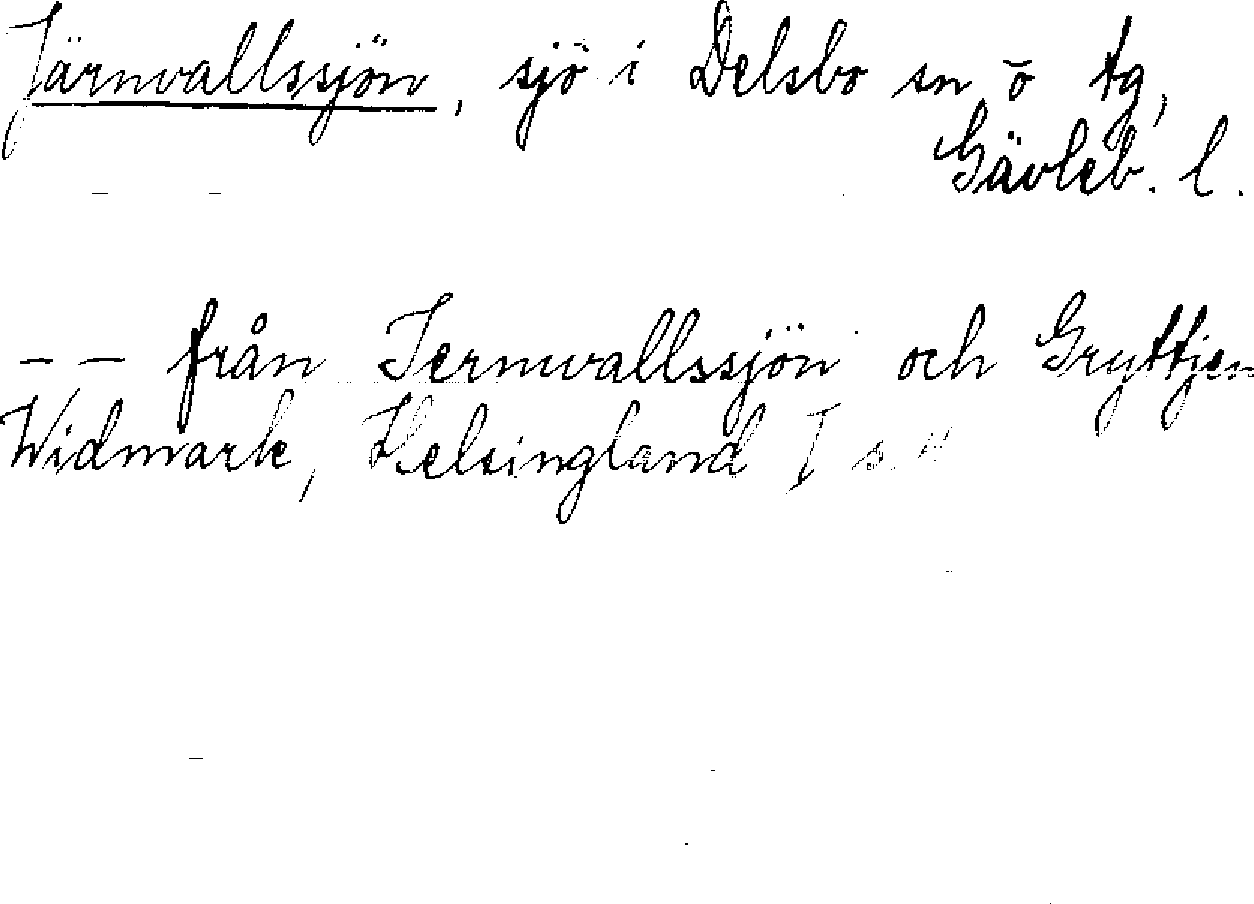 Järnvallssjön, sjö i Delsbo sn o tg,
Gävleb. l.
-- från Jernvallssjön och Gryttjen
Widmark, Helsingland I s.